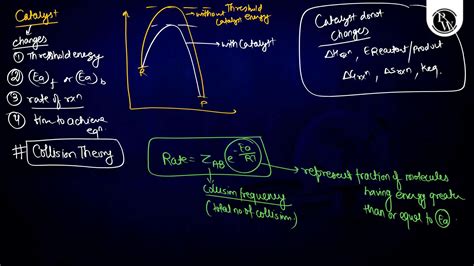 Catalyst
changes
① Threshold energy
② (Ea)f or (Ea)b
③ rate of rxn
④ Time to achieve
eqm.
# Collision Theory
without Threshold
Catalyst energy
with Catalyst
R
P
Catalyst do not
changes
ΔHrxn, E Reactant/Product
ΔGrxn, ΔSrxn, Keq.
PW
Rate = ZAB e^-Ea/RT
Collision frequency
(total no of collision)
represent fraction of molecules
having energy greater
than or equal to Ea